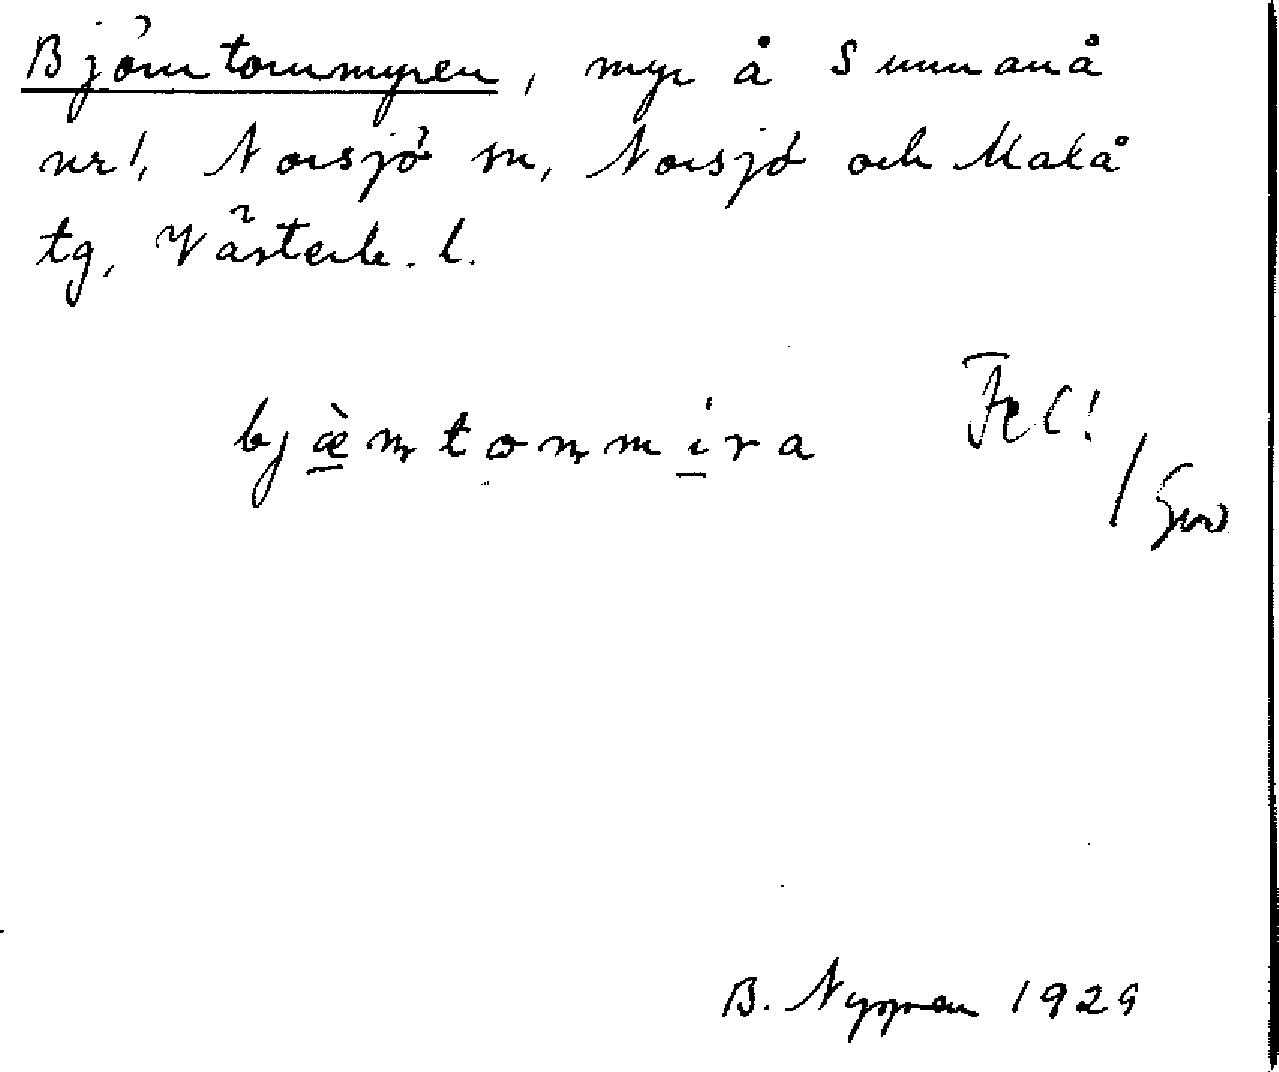 Björntornmyren, myr å Sunnanå
nr 1, Norsjö sn, Norsjö och Malå
tg, Västerb. l.
bjæ̀ntonnmíra
Fel!
B. Nyman 1929